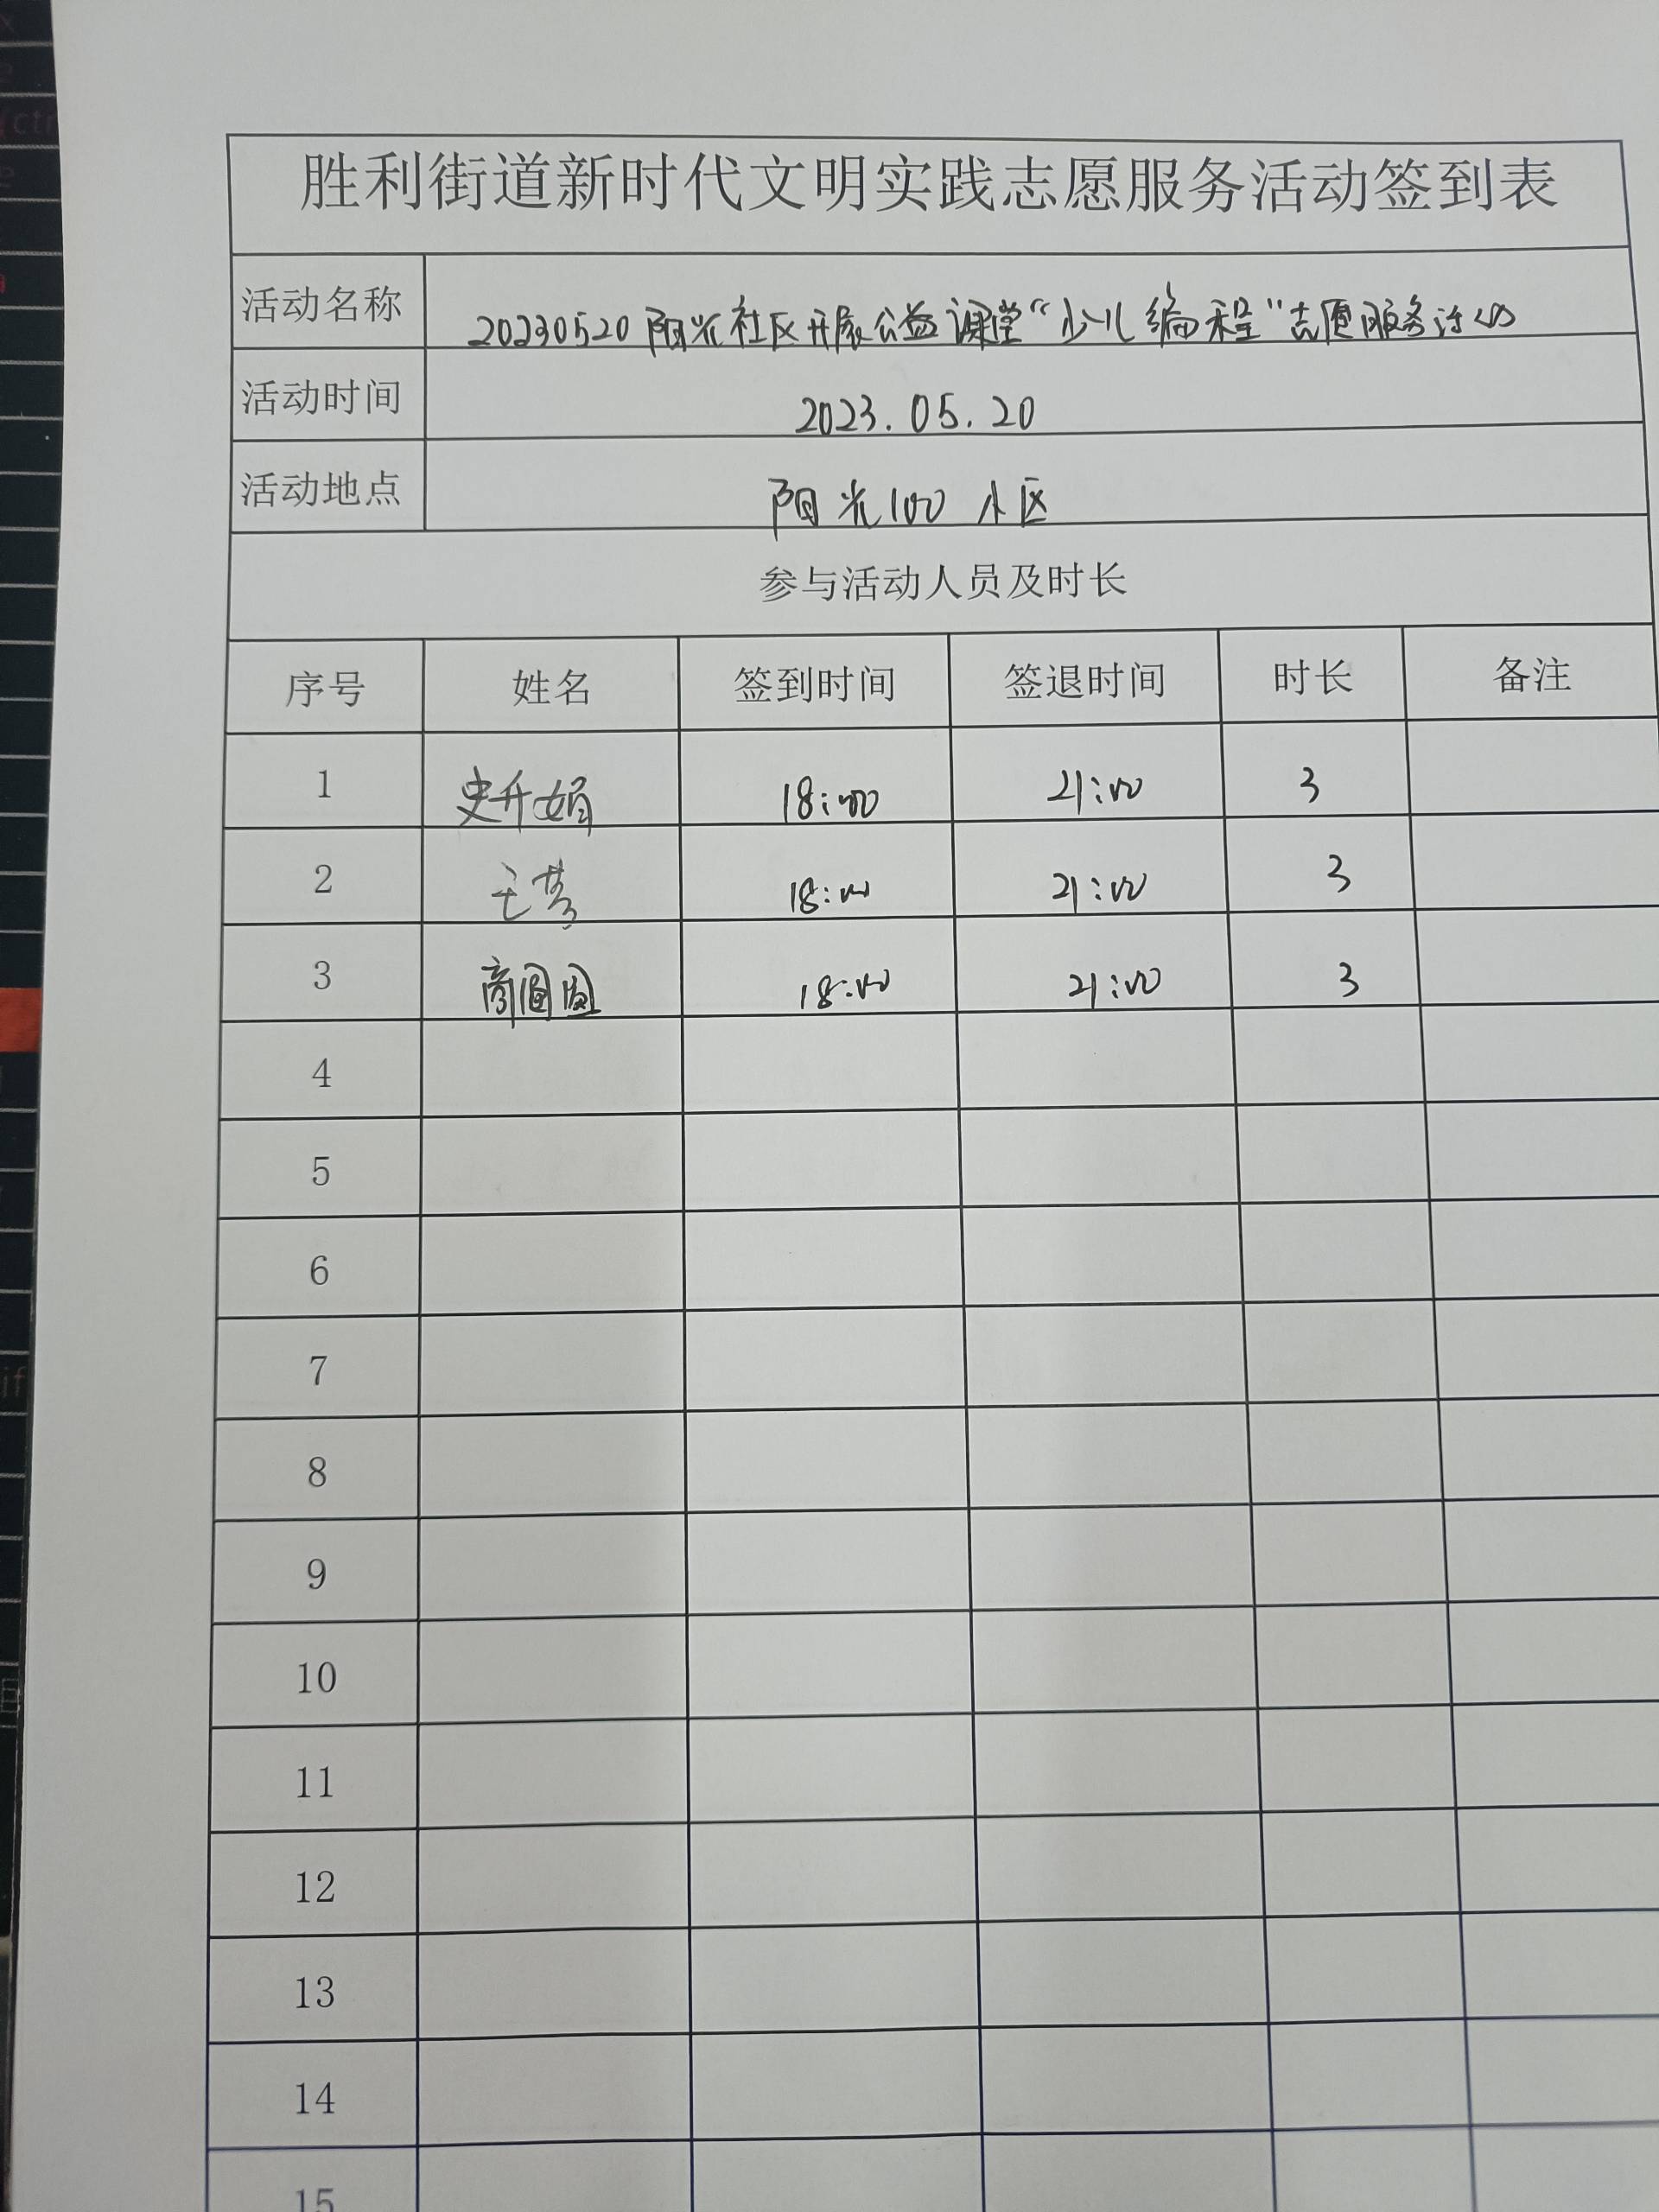 胜利街道新时代文明实践志愿服务活动签到表
活动名称 20230520阳光社区开展公益课堂“少儿编程”志愿服务活动
活动时间 2023.05.20
活动地点 阳光100小区
参与活动人员及时长
序号 姓名 签到时间 签退时间 时长 备注
1 史开娟 18:00 21:00 3
2 王梦 18:00 21:00 3
3 商圆圆 18:00 21:00 3
4
5
6
7
8
9
10
11
12
13
14
15